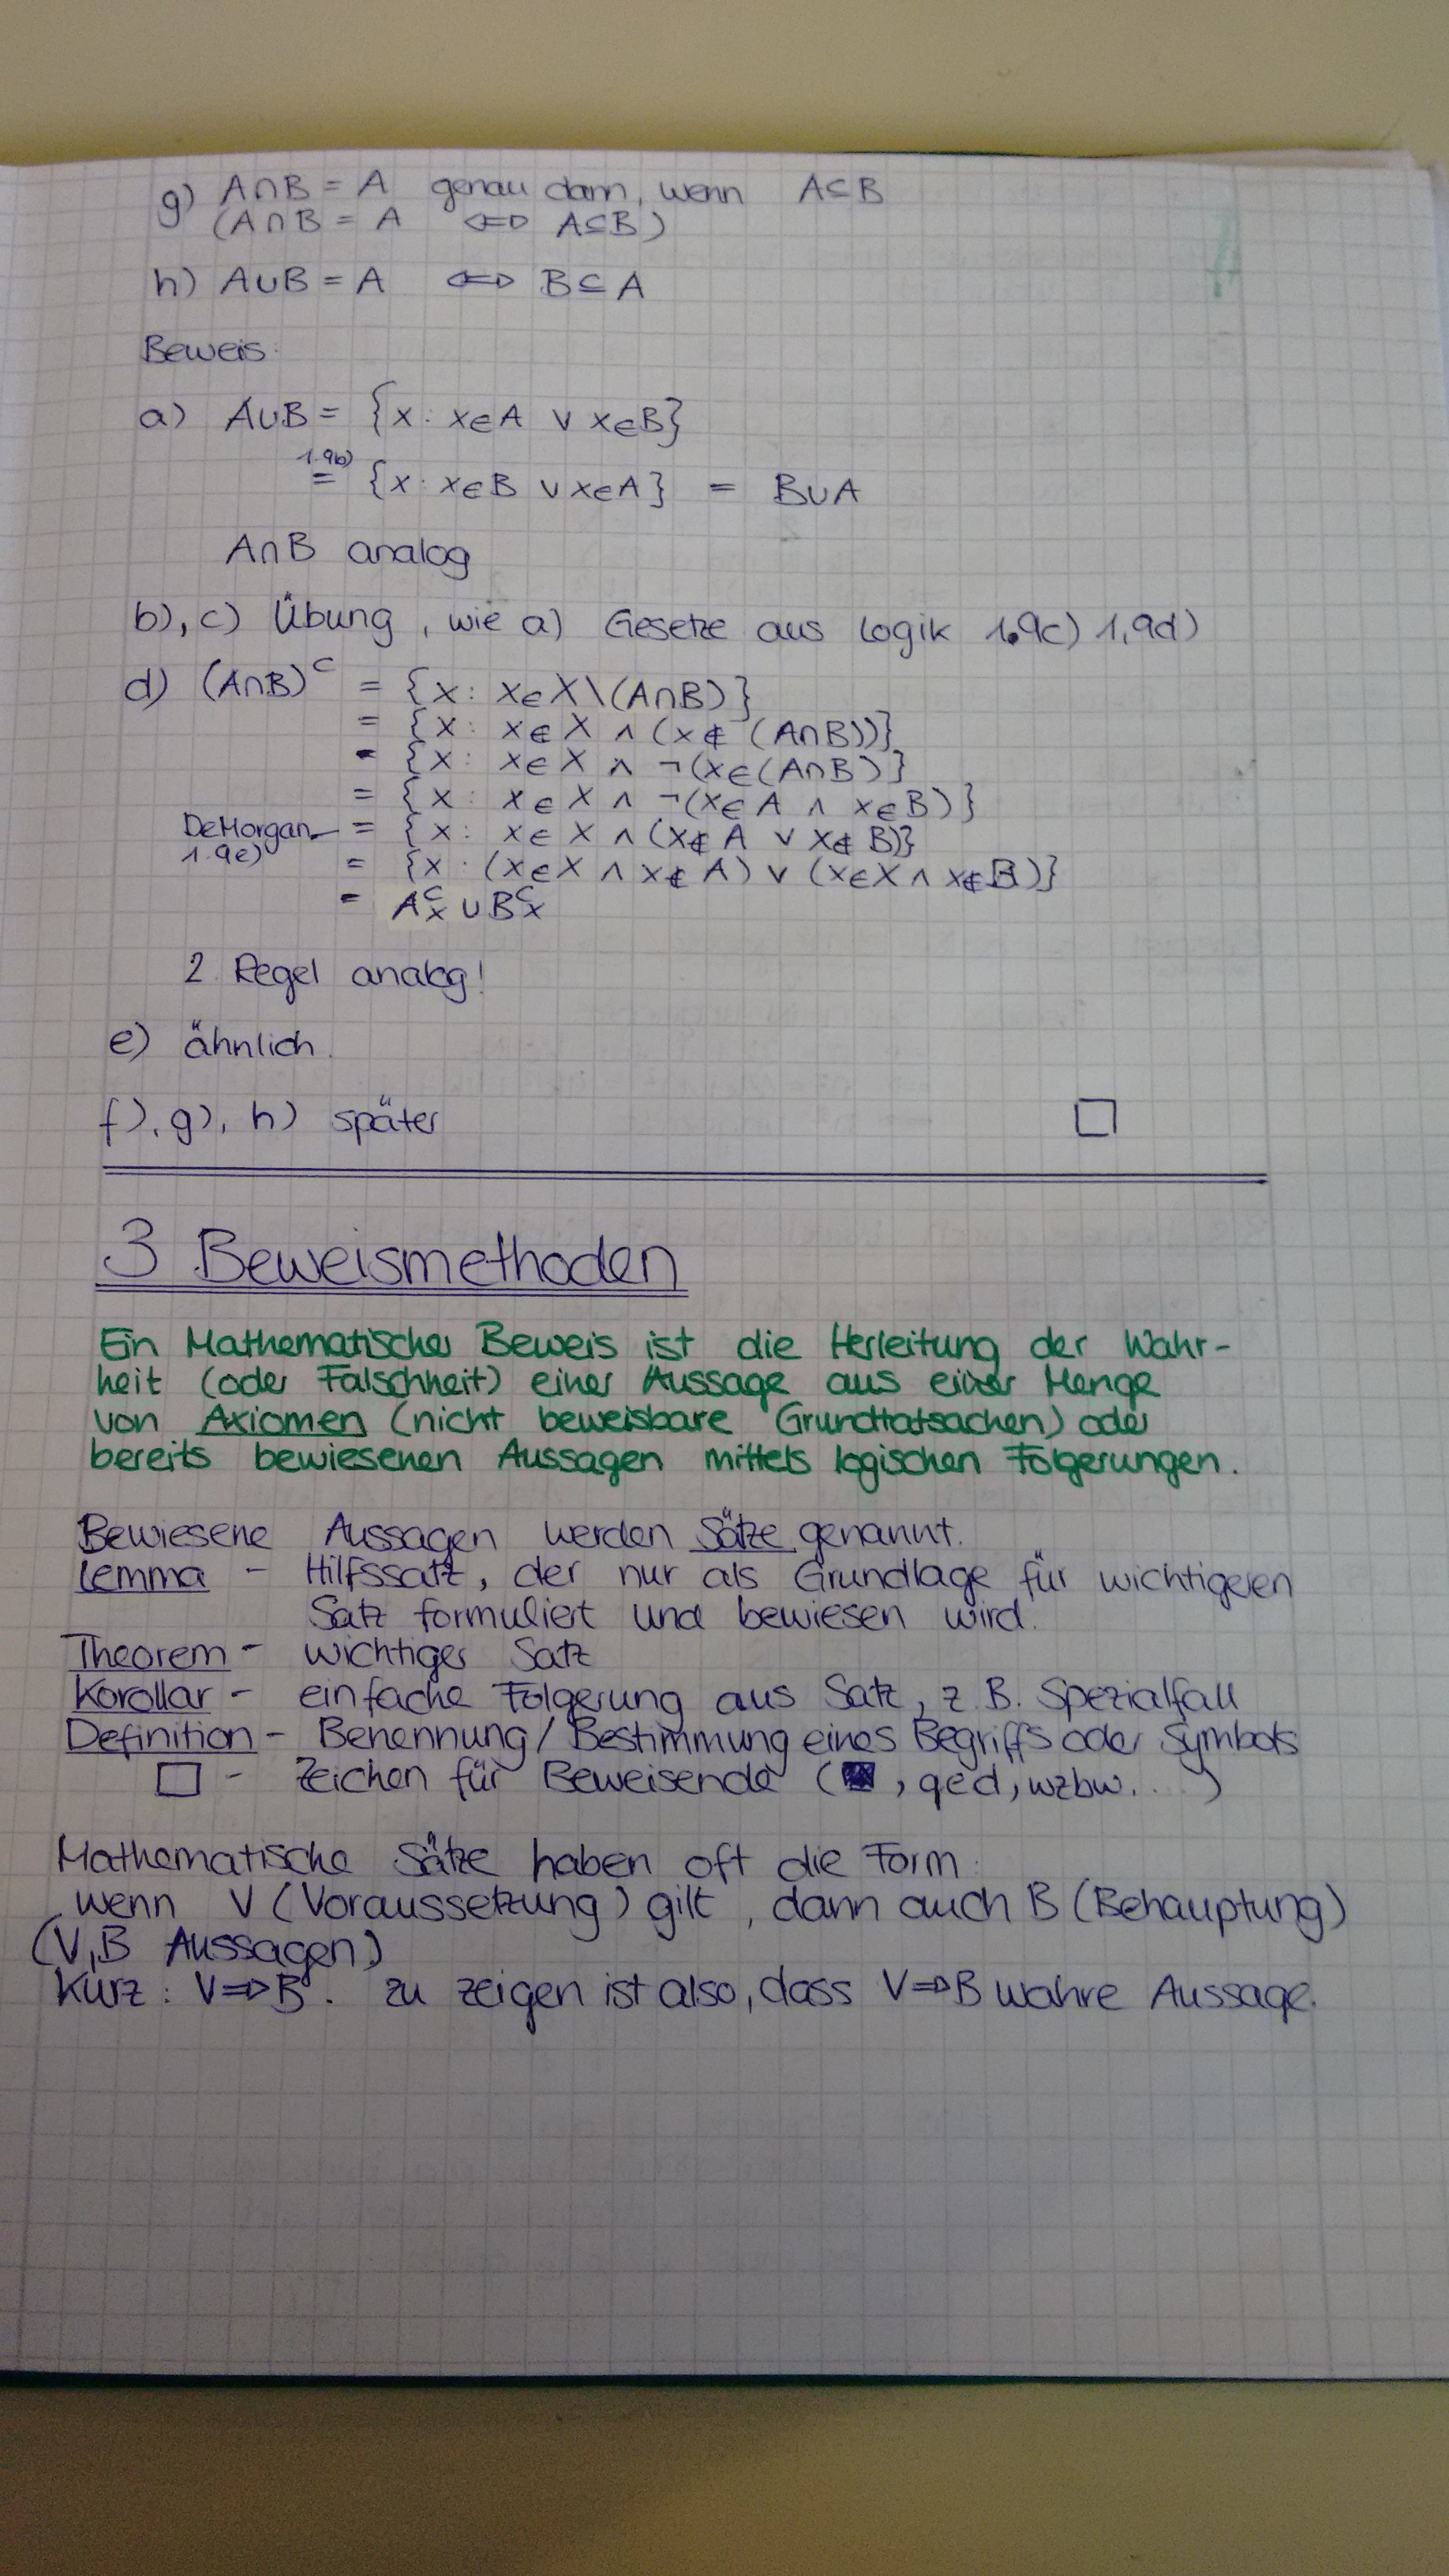 g) A∩B = A genau dann, wenn A⊆B
(A∩B = A ⇔ A⊆B)
h) A∪B = A ⇔ B⊆A
Beweis:
a) A∪B = {x : x∈A ∨ x∈B}
1.9b)
= {x : x∈B ∨ x∈A} = B∪A
A∩B analog
b), c) Übung, wie a) Gesetze aus Logik 1.9c) 1.9d)
d) (A∩B)ᶜ = {x : x∈X\(A∩B)}
= {x : x∈X ∧ (x∉(A∩B))}
= {x : x∈X ∧ ¬(x∈(A∩B)}
= {x : x∈X ∧ ¬(x∈A ∧ x∈B)}
DeMorgan = {x : x∈X ∧ (x∉A ∨ x∉B)}
1.9e) = {x : (x∈X ∧ x∉A) ∨ (x∈X ∧ x∉B)}
= Aᶜₓ ∪ Bᶜₓ
2. Regel analog!
e) ähnlich.
f), g), h) später □
3 Beweismethoden
Ein Mathematischer Beweis ist die Herleitung der Wahr-
heit (oder Falschheit) einer Aussage aus einer Menge
von Axiomen (nicht beweisbare Grundtatsachen) oder
bereits bewiesenen Aussagen mittels logischen Folgerungen.
Bewiesene Aussagen werden Sätze genannt.
Lemma - Hilfssatz, der nur als Grundlage für wichtigeren
Satz formuliert und bewiesen wird.
Theorem - wichtiger Satz
Korollar - einfache Folgerung aus Satz, z.B. Spezialfall
Definition - Benennung/Bestimmung eines Begriffs oder Symbols
□ - Zeichen für Beweisende (■, qed, wzbw. ...)
Mathematische Sätze haben oft die Form:
wenn V (Voraussetzung) gilt, dann auch B (Behauptung)
(V,B Aussagen)
Kurz: V⇒B. zu zeigen ist also, dass V⇒B wahre Aussage.